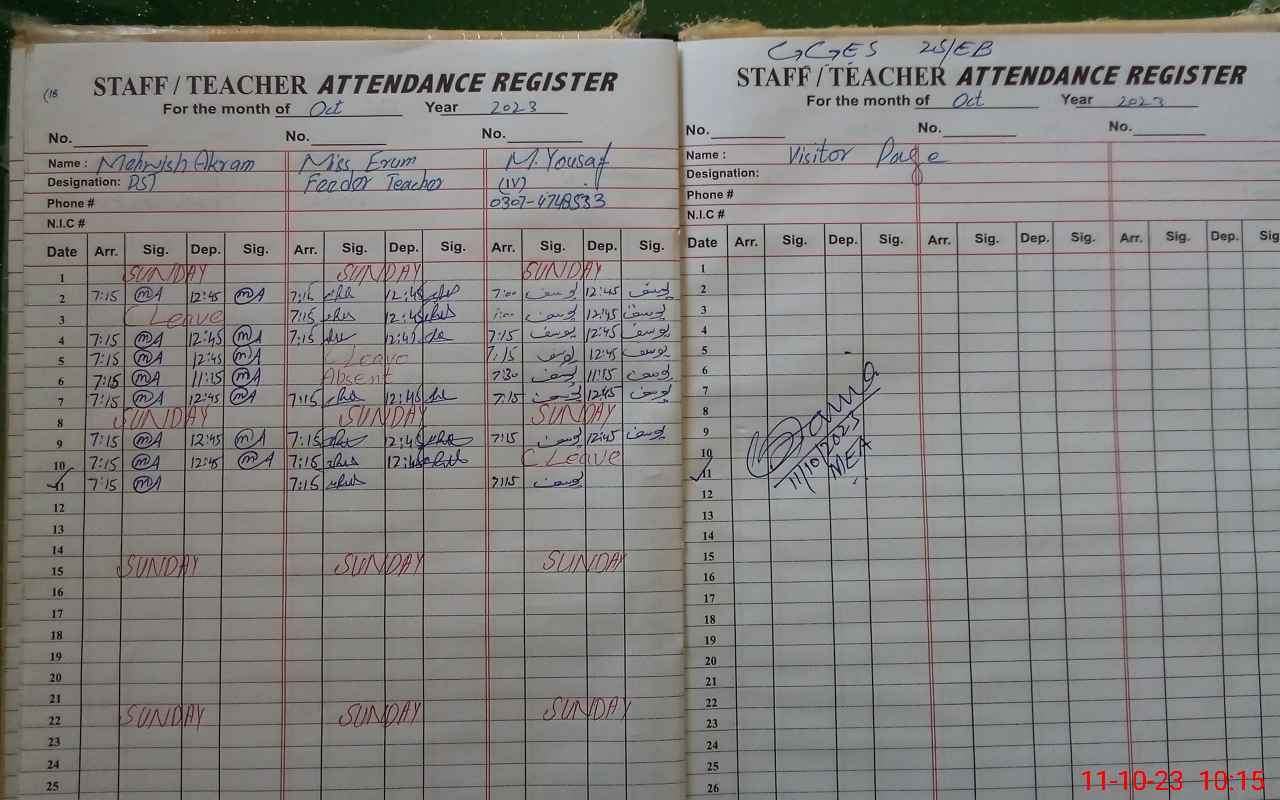 STAFF / TEACHER ATTENDANCE REGISTER
For the month of Oct Year 2023
No. No. No.
Name : Mehwish Akram Miss Erum M. Yousaf
Designation: PST Feeder Teacher (IV)
Phone # 0307-4748533
N.I.C #
Date Arr. Sig. Dep. Sig. Arr. Sig. Dep. Sig. Arr. Sig. Dep. Sig.
1 SUNDAY SUNDAY SUNDAY
2 7:15 MA 12:45 MA 7:15 12:45 7:00 یوسف 12:45 یوسف
3 C Leave 7:15 12:45 یوسف 12:45 یوسف
4 7:15 MA 12:45 MA 7:15 12:45 7:15 یوسف 12:45 یوسف
5 7:15 MA 12:45 MA C Leave 7:15 یوسف 12:45 یوسف
6 7:15 MA 11:15 MA Absent 7:30 یوسف 11:15 یوسف
7 7:15 MA 12:45 MA 7:15 12:45 7:15 یوسف 12:45 یوسف
8 SUNDAY SUNDAY SUNDAY
9 7:15 MA 12:45 MA 7:15 12:45 7:15 یوسف 12:45 یوسف
10 7:15 MA 12:45 MA 7:15 12:45 C Leave
11 7:15 MA 7:15 7:15 یوسف
12
13
14
15 SUNDAY SUNDAY SUNDAY
16
17
18
19
20
21
22 SUNDAY SUNDAY SUNDAY
23
24
25
GGES 25/EB
STAFF / TEACHER ATTENDANCE REGISTER
For the month of Oct Year 2023
No. No. No.
Name : Visitor Page
Designation:
Phone #
N.I.C #
Date Arr. Sig. Dep. Sig. Arr. Sig. Dep. Sig. Arr. Sig. Dep. Sig
1
2
3
4
5
6
7
8
9
10
11
12
13
14
15
16
17
18
19
20
21
22
23
24
25
26
11/10/2023
MEA
11-10-23 10:15